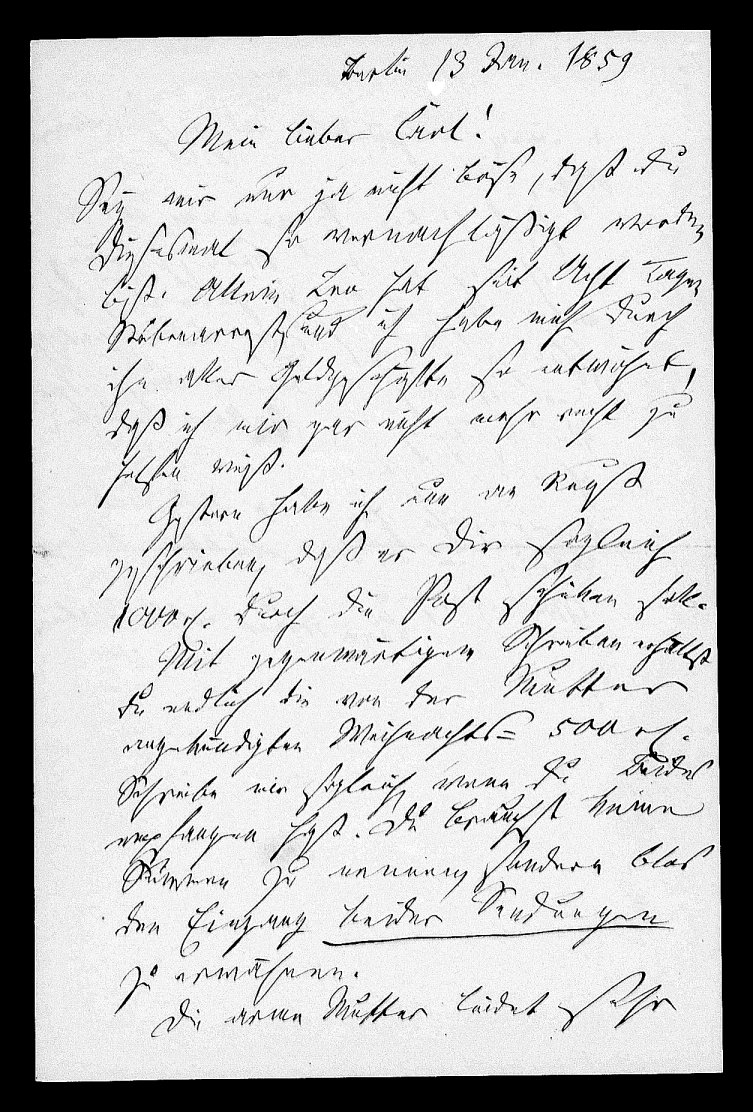 Berlin 13 Jan. 1859
Mein lieber Carl!
Sey mir nur ja nicht böse, daß Du
diesesmal so vernachläßigt worden
bist. Allein Leo hat seit Acht Tagen
Stubenarrest, und ich habe mich durch
ihn aller Geldgeschäfte so entwöhnt,
daß ich mir gar nicht mehr recht zu
helfen weiß.
Gestern habe ich nun an
geschrieben, daß er Dir sogleich
1000 rℓ. durch die Post schicken soll.
Mit gegenwärtigem Schreiben erhältst
Du endlich die von der Mutter
angekündigten Weihnachts= 500 rℓ.
Schreibe mir sogleich, wenn Du Beides
empfangen hast. Du brauchst keine
Summen zu nennen, sondern blos
den Eingang beider Sendungen
zu erwähnen.
Die arme Mutter leidet sehr